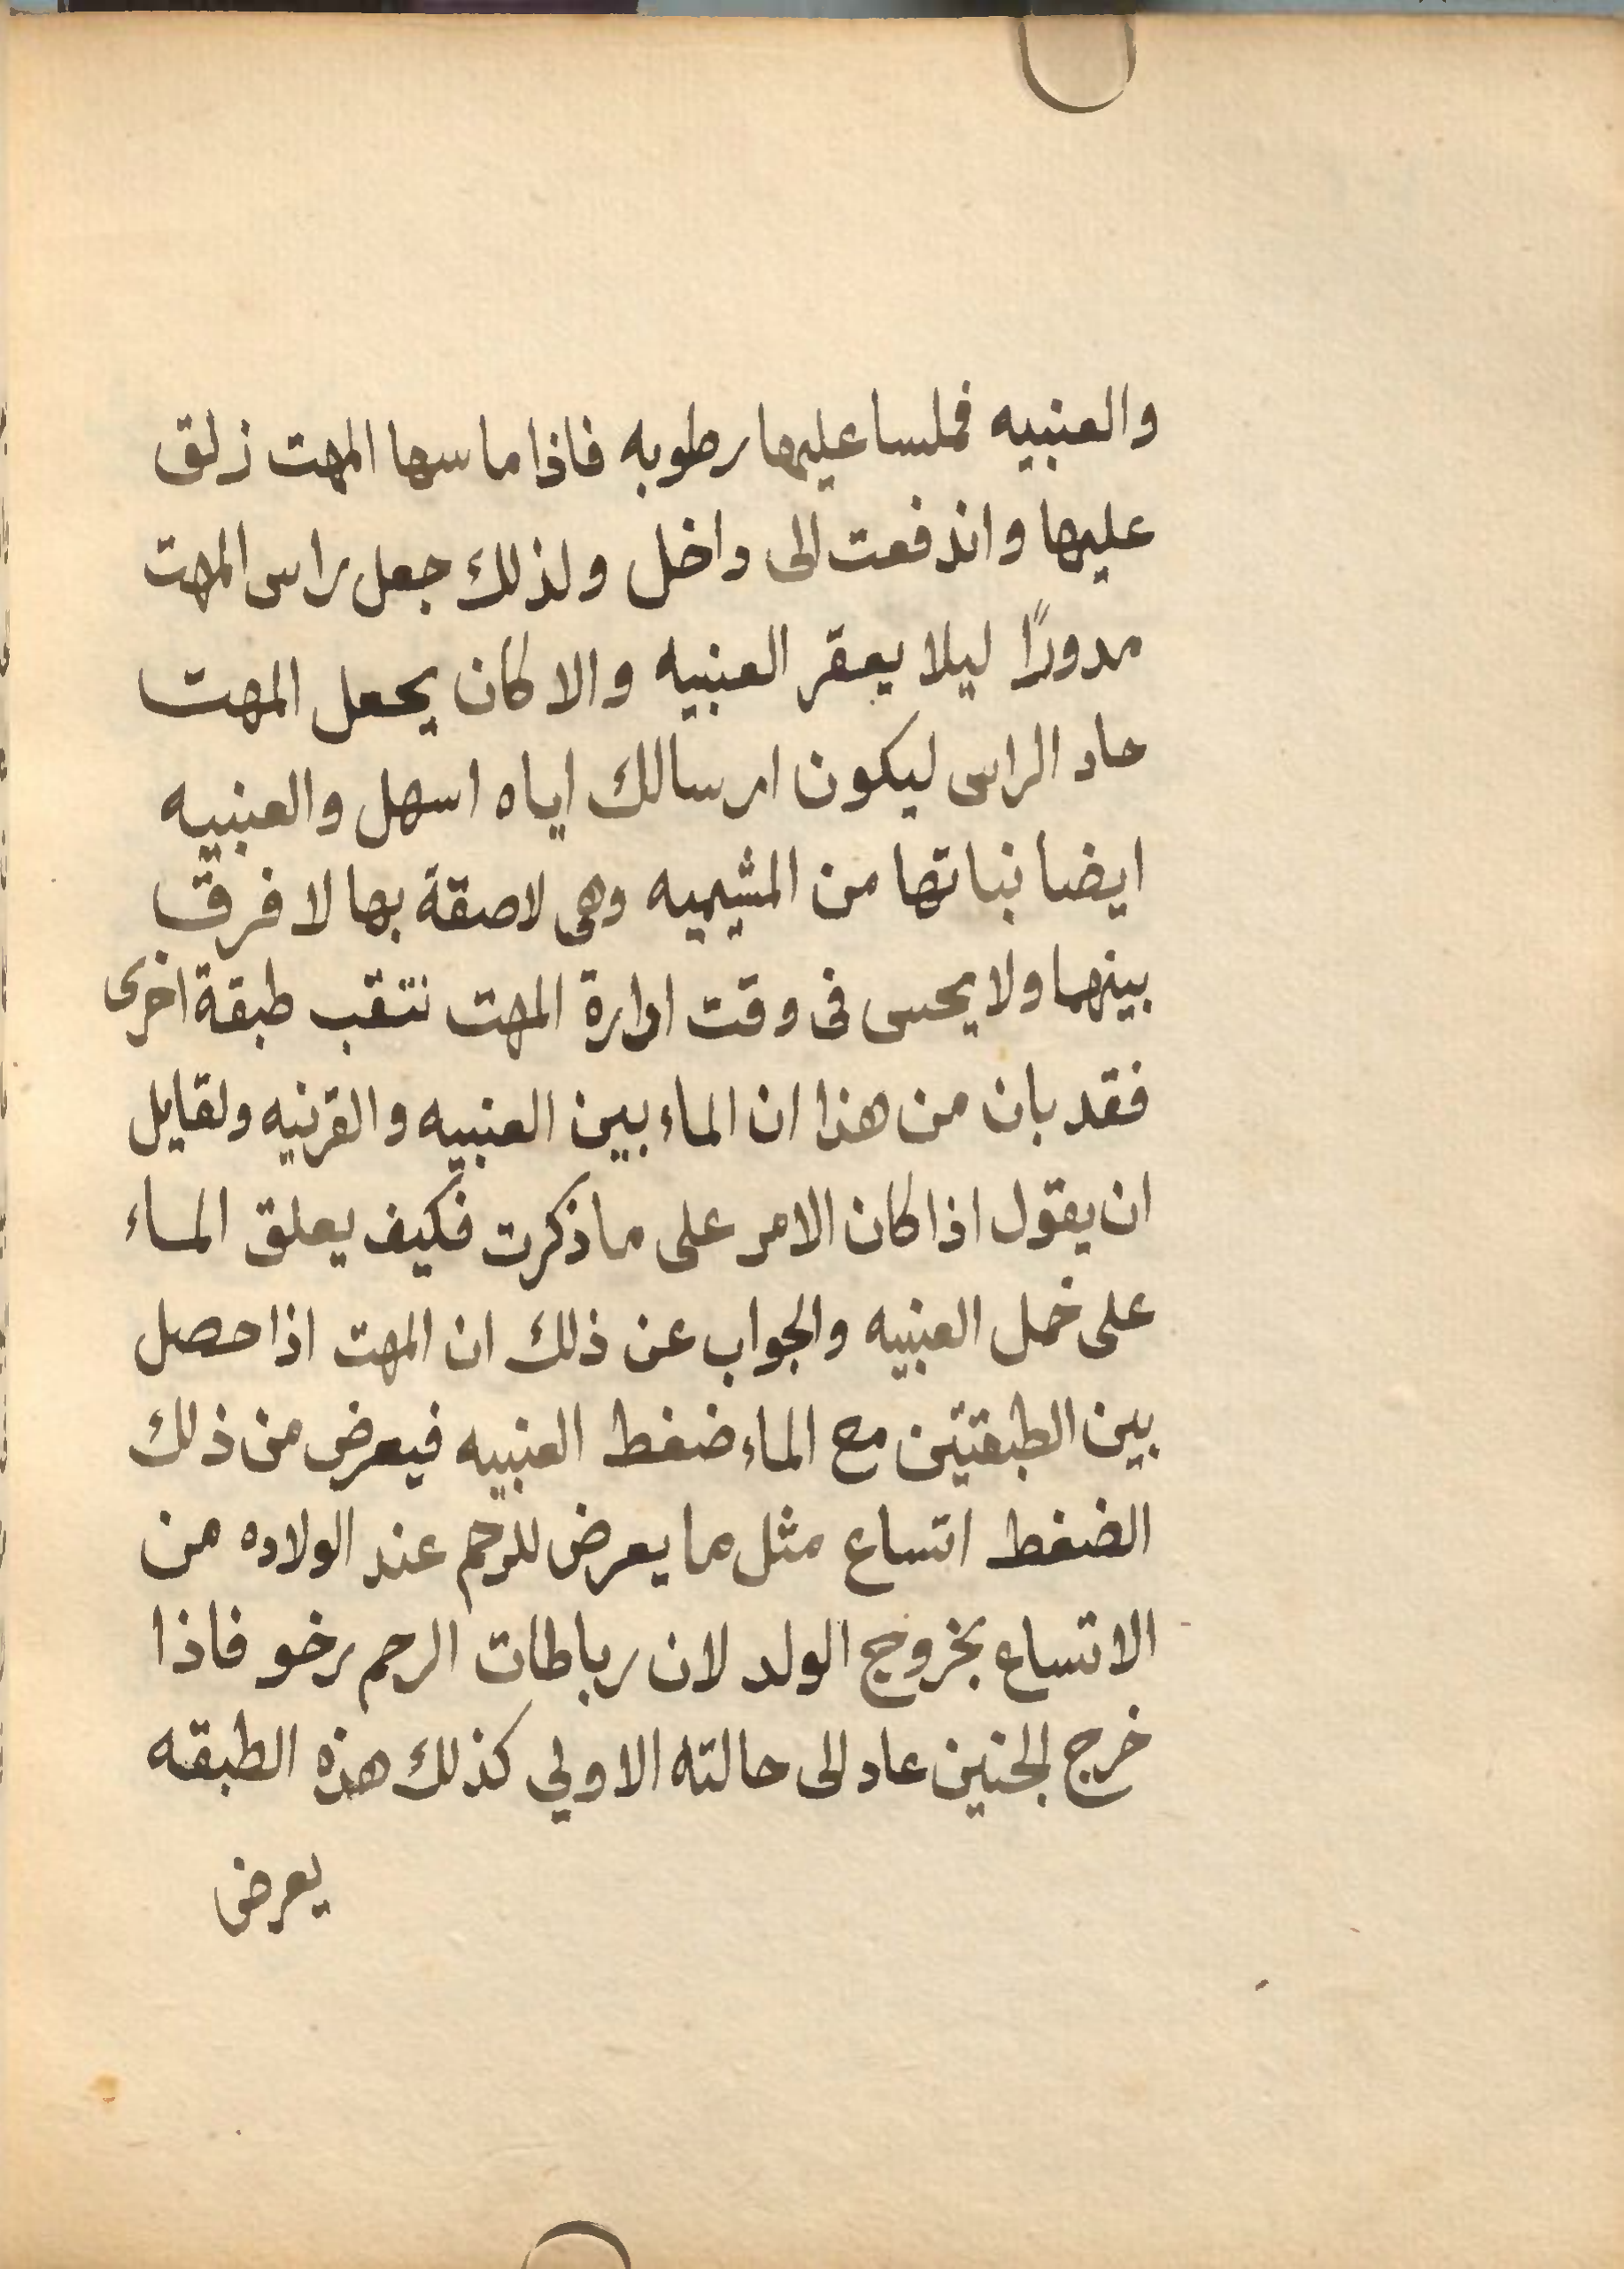 والعنبيه فملسا عليها رطوبه فاذا ماسها المهت زلق
عليها واندفعت الى داخل ولذلك جعل راس المهت
مدورًا ليلا يعقر العنبيه والا كان يجعل المهت
حاد الراس ليكون ارسالك اياه اسهل والعنبيه
ايضا نباتها من المشيميه وهى لاصقة بها لا فرق
بينهما ولا يحس فى وقت ادارة المهت نتقب طبقة اخرى
فقد بان من هذا ان الماء بين العنبيه والقرنيه ولقايل
ان يقول اذا كان الامر على ما ذكرت فكيف يعلق الماء
على خمل العنبيه والجواب عن ذلك ان المهت اذا حصل
بين الطبقتين مع الماء ضغط العنبيه فيعرض من ذلك
الضغط اتساع مثل ما يعرض للرحم عند الولاده من
الاتساع بخروج الولد لان رباطات الرحم رخو فاذا
خرج الجنين عاد الى حالته الاولي كذلك هذه الطبقه
يعرض